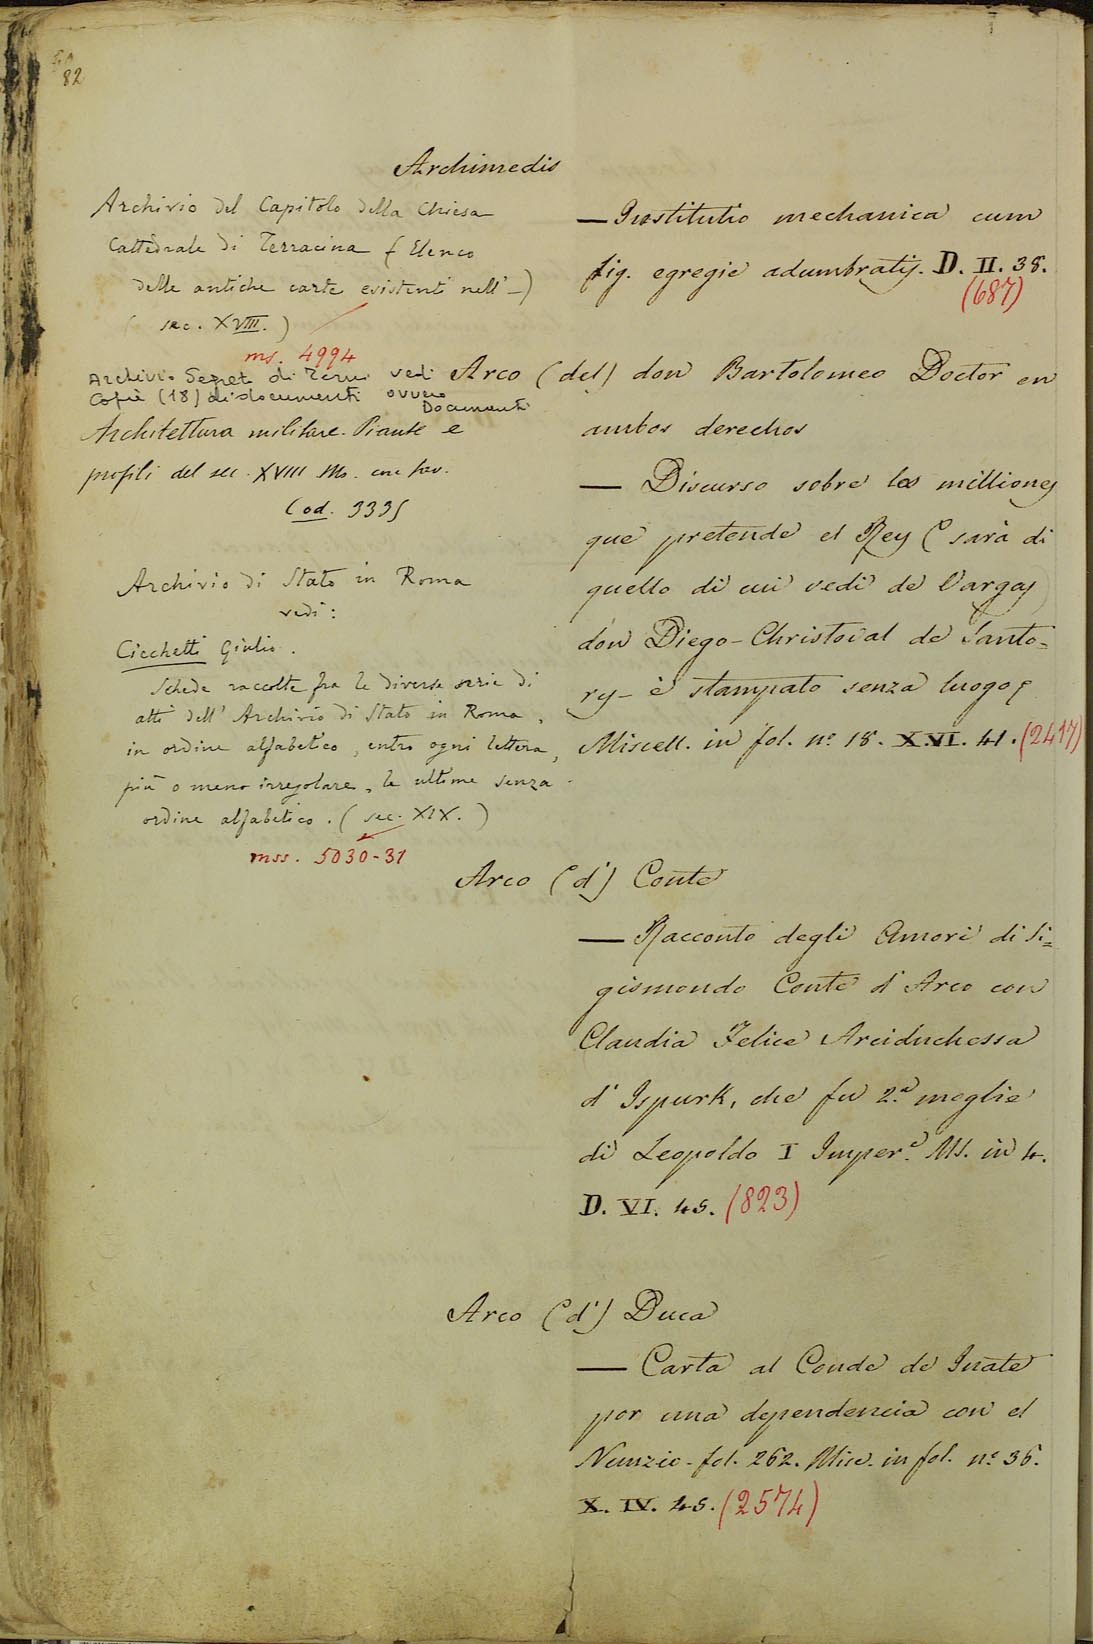 82
Archimedis
Archivio del Capitolo della Chiesa
Cattedrale di Terracina (Elenco
delle antiche carte esistenti nell' –)
(sec. XVIII.)
ms. 4994
Archivio Segreto di Terni vedi
Copie (18) di documenti ovvero
Documenti
Architettura militare. Piante e
profili del sec. XVIII Ms. con tav.
Cod. 3335
Archivio di Stato in Roma
vedi:
Cicchetti Giulio.
Schede raccolte fra le diverse serie di
atti dell' Archivio di Stato in Roma,
in ordine alfabetico, entro ogni lettera,
più o meno irregolare, le ultime senza
ordine alfabetico. (sec. XIX.)
mss. 5030-31
— Institutio mechanica cum
fig. egregie adumbratis. D. II. 38.
(687)
Arco (del) don Bartolomeo Doctor en
ambos derechos
— Discurso sobre los milliones
que pretende el Rey (sarà di
quello di cui vedi de Vargas
don Diego-Christoval de Santo=
ry – è stampato senza luogo)
Miscell. in fol. n.º 18. X.VI. 41. (2417)
Arco (d') Conte
— Racconto degli Amori di Si=
gismondo Conte d'Arco con
Claudia Felice Arciduchessa
d'Ispurk, che fu 2.ª moglie
di Leopoldo I Imper.e Ms. in 4.
D. VI. 45. (823)
Arco (d') Duca
— Carta al Conde de Inate
por una dependencia con el
Nunzio - fol. 262. Misc. in fol. n.º 36.
X. IV. 45. (2574)